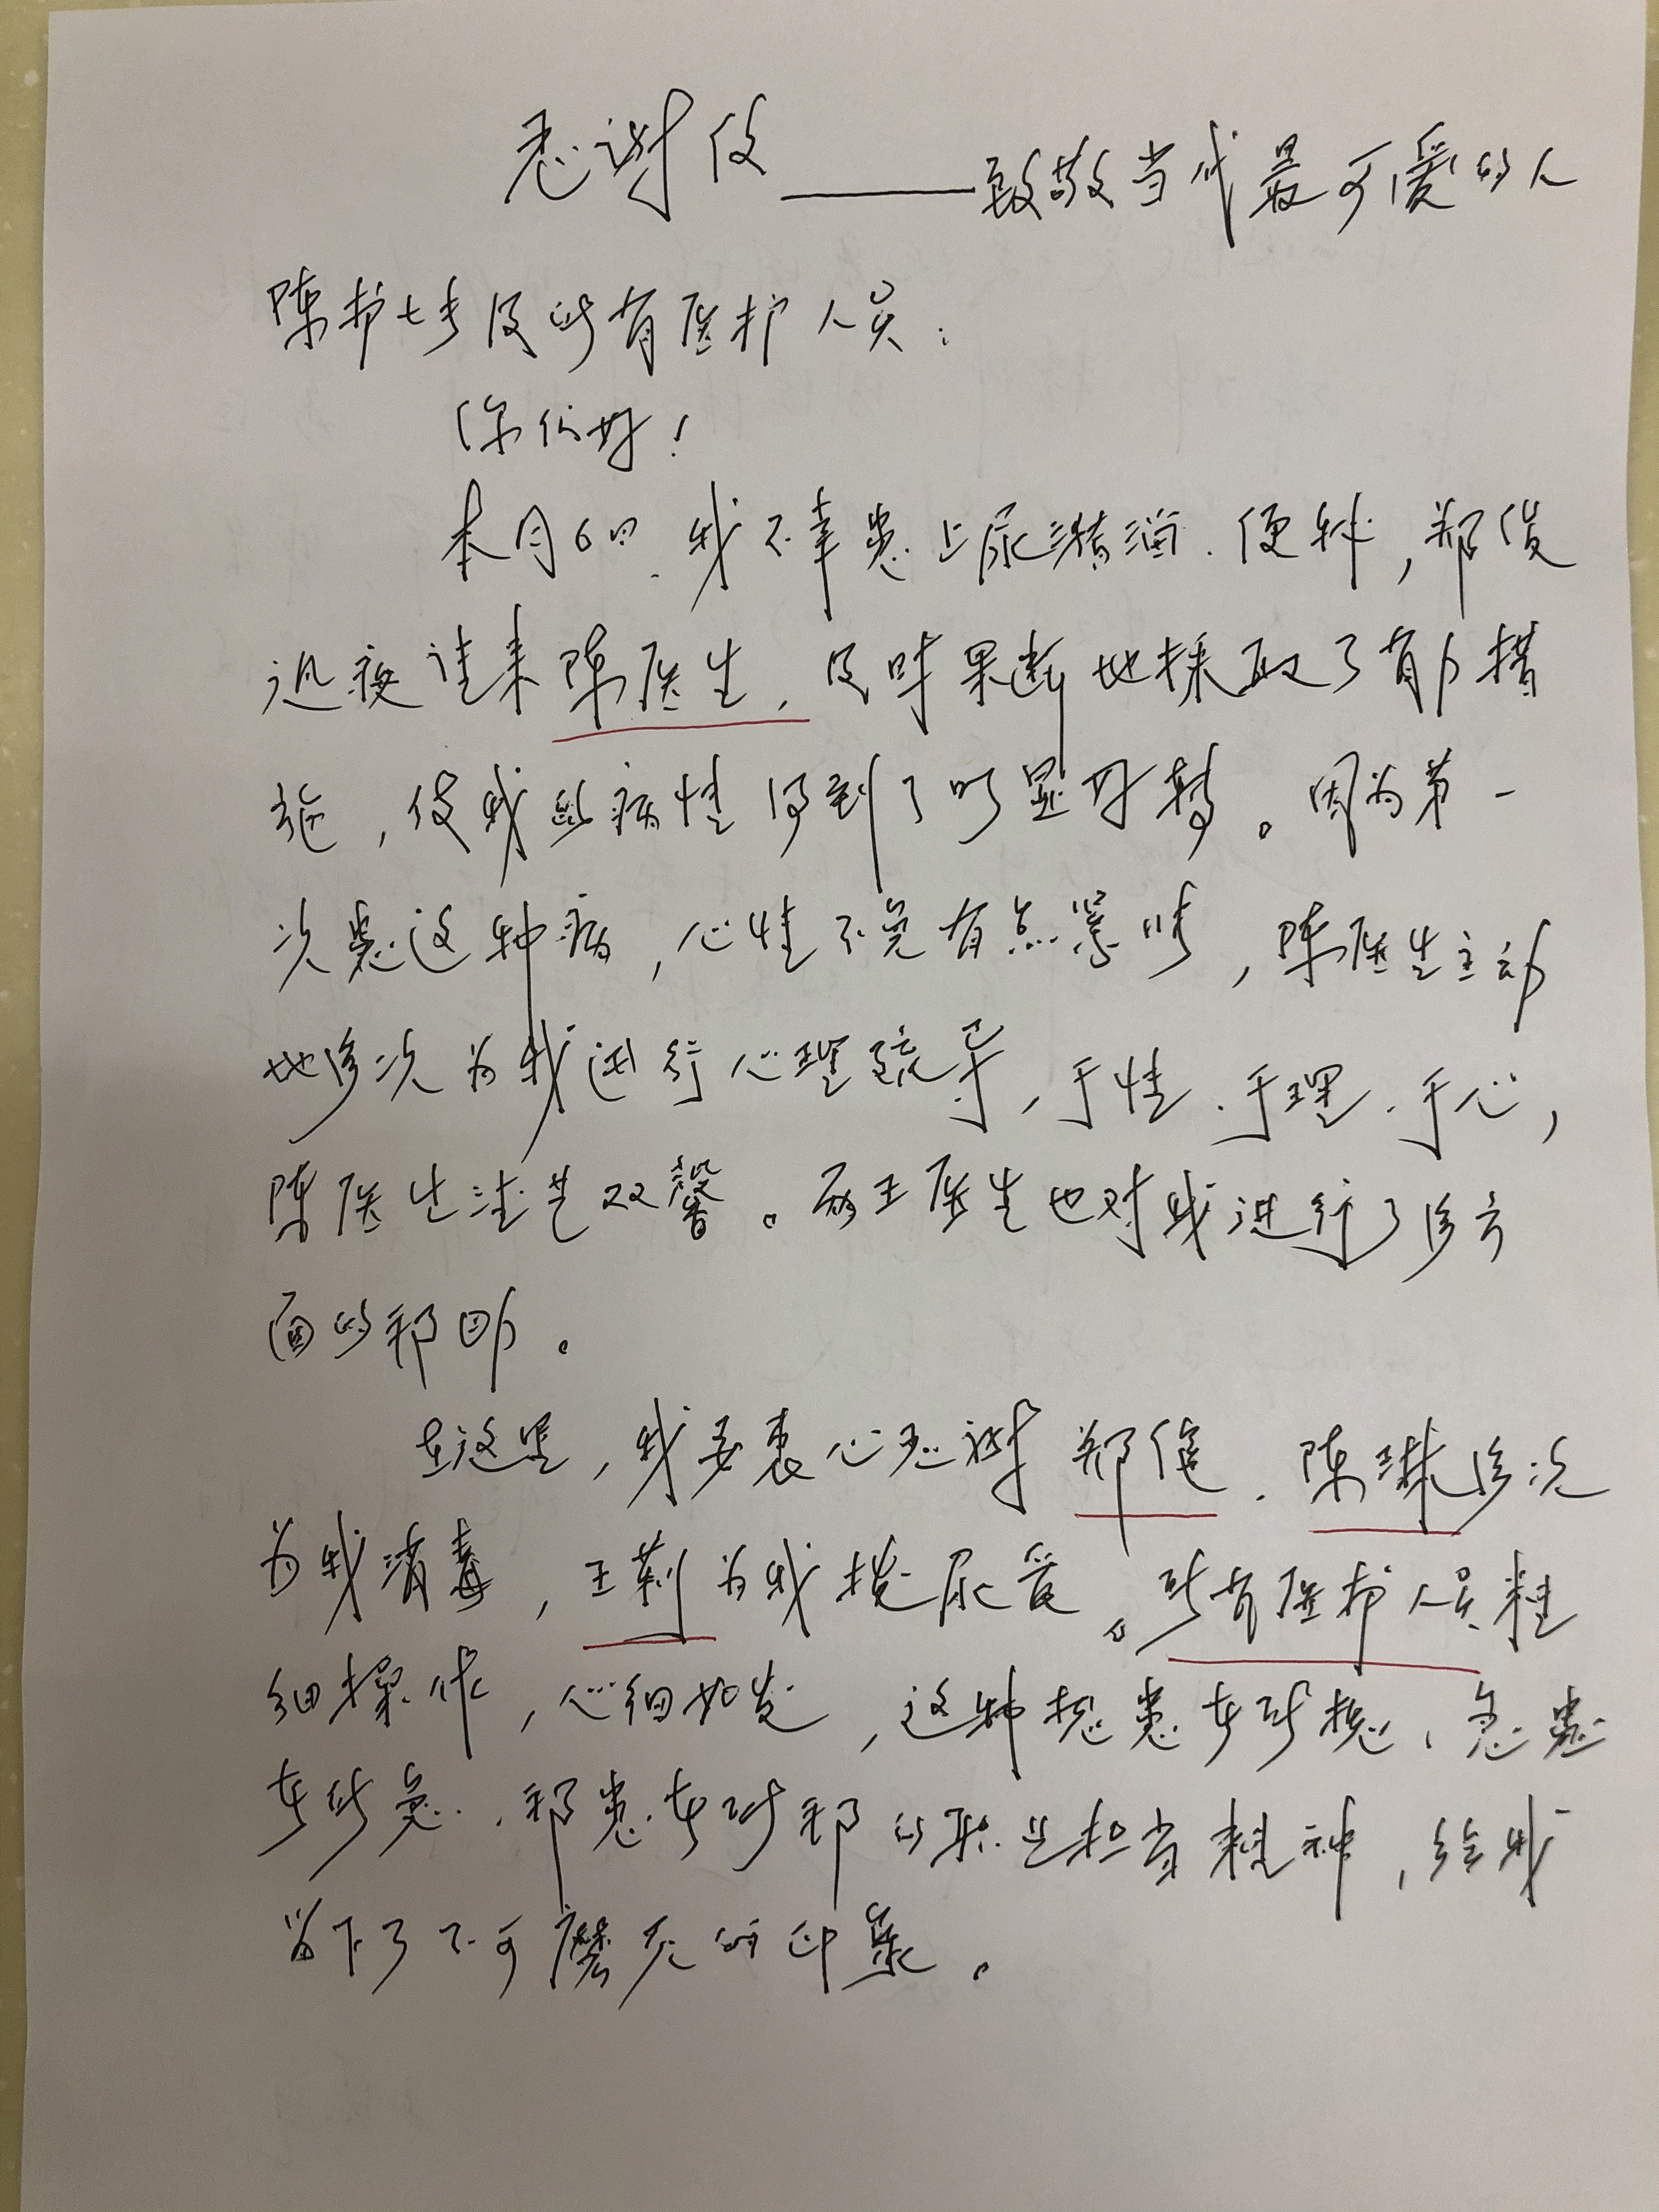 感谢信——致敬当代最可爱的人
陈护士长及所有医护人员：
你们好！
本月6日，我不幸患上尿潴溜、便秘，郑俊
连夜请来陈医生，及时果断地採取了有力措
施，使我的病情得到了明显好转。因为第一
次患这种病，心情不免有点紧张，陈医生主动
地多次为我进行心理疏导，于情、于理、于心，
陈医生德艺双馨。而王医生也对我进行了多方
面的帮助。
在这里，我要衷心感谢郑俊、陈琳多次
为我消毒，王莉为我拔尿管。所有医护人员精
细操作，心细如发，这种想患者所想、急患
者所急、帮患者所帮的职业担当精神，给我
留下了不可磨灭的印象。